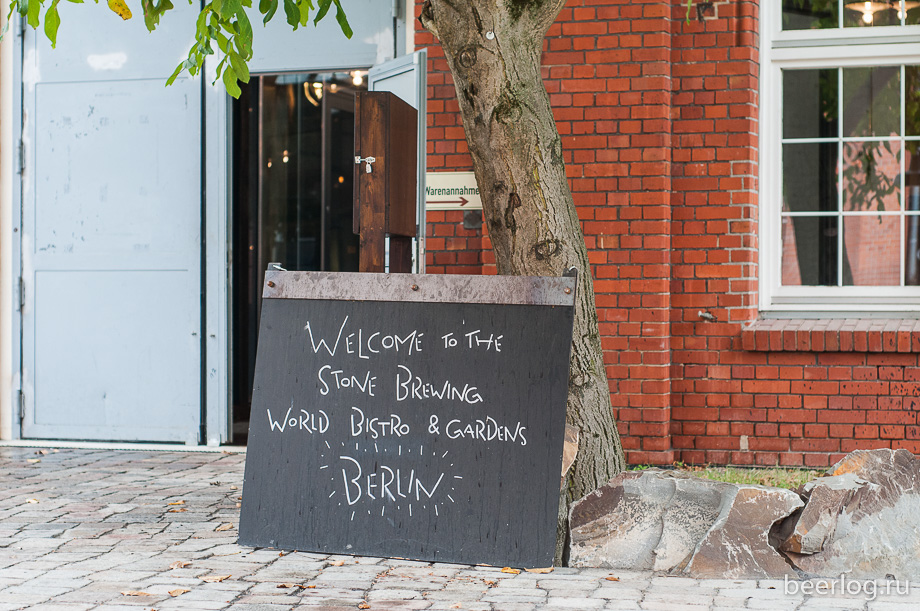 Warenannahme
WELCOME TO THE
STONE BREWING
WORLD BISTRO & GARDENS
BERLIN
beerlog.ru